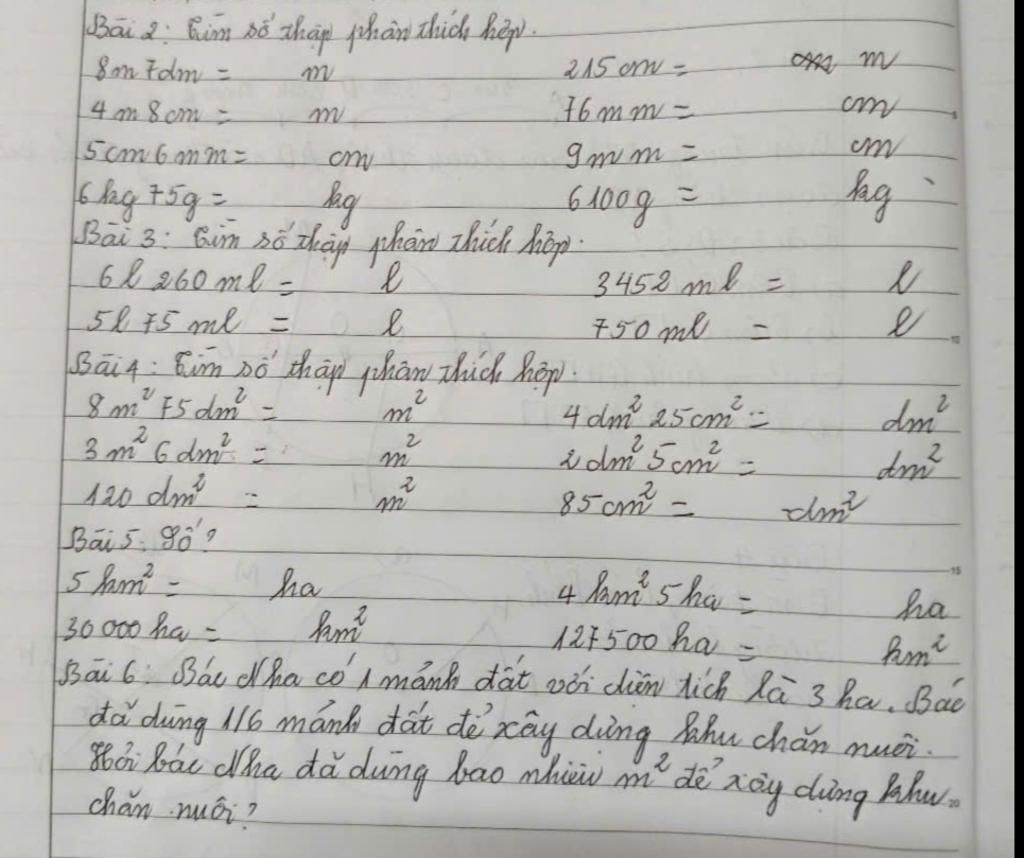 Bài 2: Tìm số thập phân thích hợp.
8m 7dm = m 215 cm = m
4 m 8 cm = m 76 mm = cm
5 cm 6 mm = cm 9 mm = cm
6 kg 75g = kg 6100g = kg
Bài 3: Tìm số thập phân thích hợp.
6 l 260 ml = l 3452 ml = l
5l 75 ml = l 750 ml = l
Bài 4: Tìm số thập phân thích hợp.
8 m² 75 dm² = m² 4 dm² 25 cm² = dm²
3 m² 6 dm² = m² 2 dm² 5 cm² = dm²
120 dm² = m² 85 cm² = dm²
Bài 5: Số?
5 km² = ha 4 km² 5 ha = ha
30 000 ha = km² 127500 ha = km²
Bài 6: Bác Nha có 1 mảnh đất với diện tích là 3 ha. Bác
đã dùng 1/6 mảnh đất để xây dựng khu chăn nuôi.
Hỏi bác Nha đã dùng bao nhiêu m² để xây dựng khu
chăn nuôi?